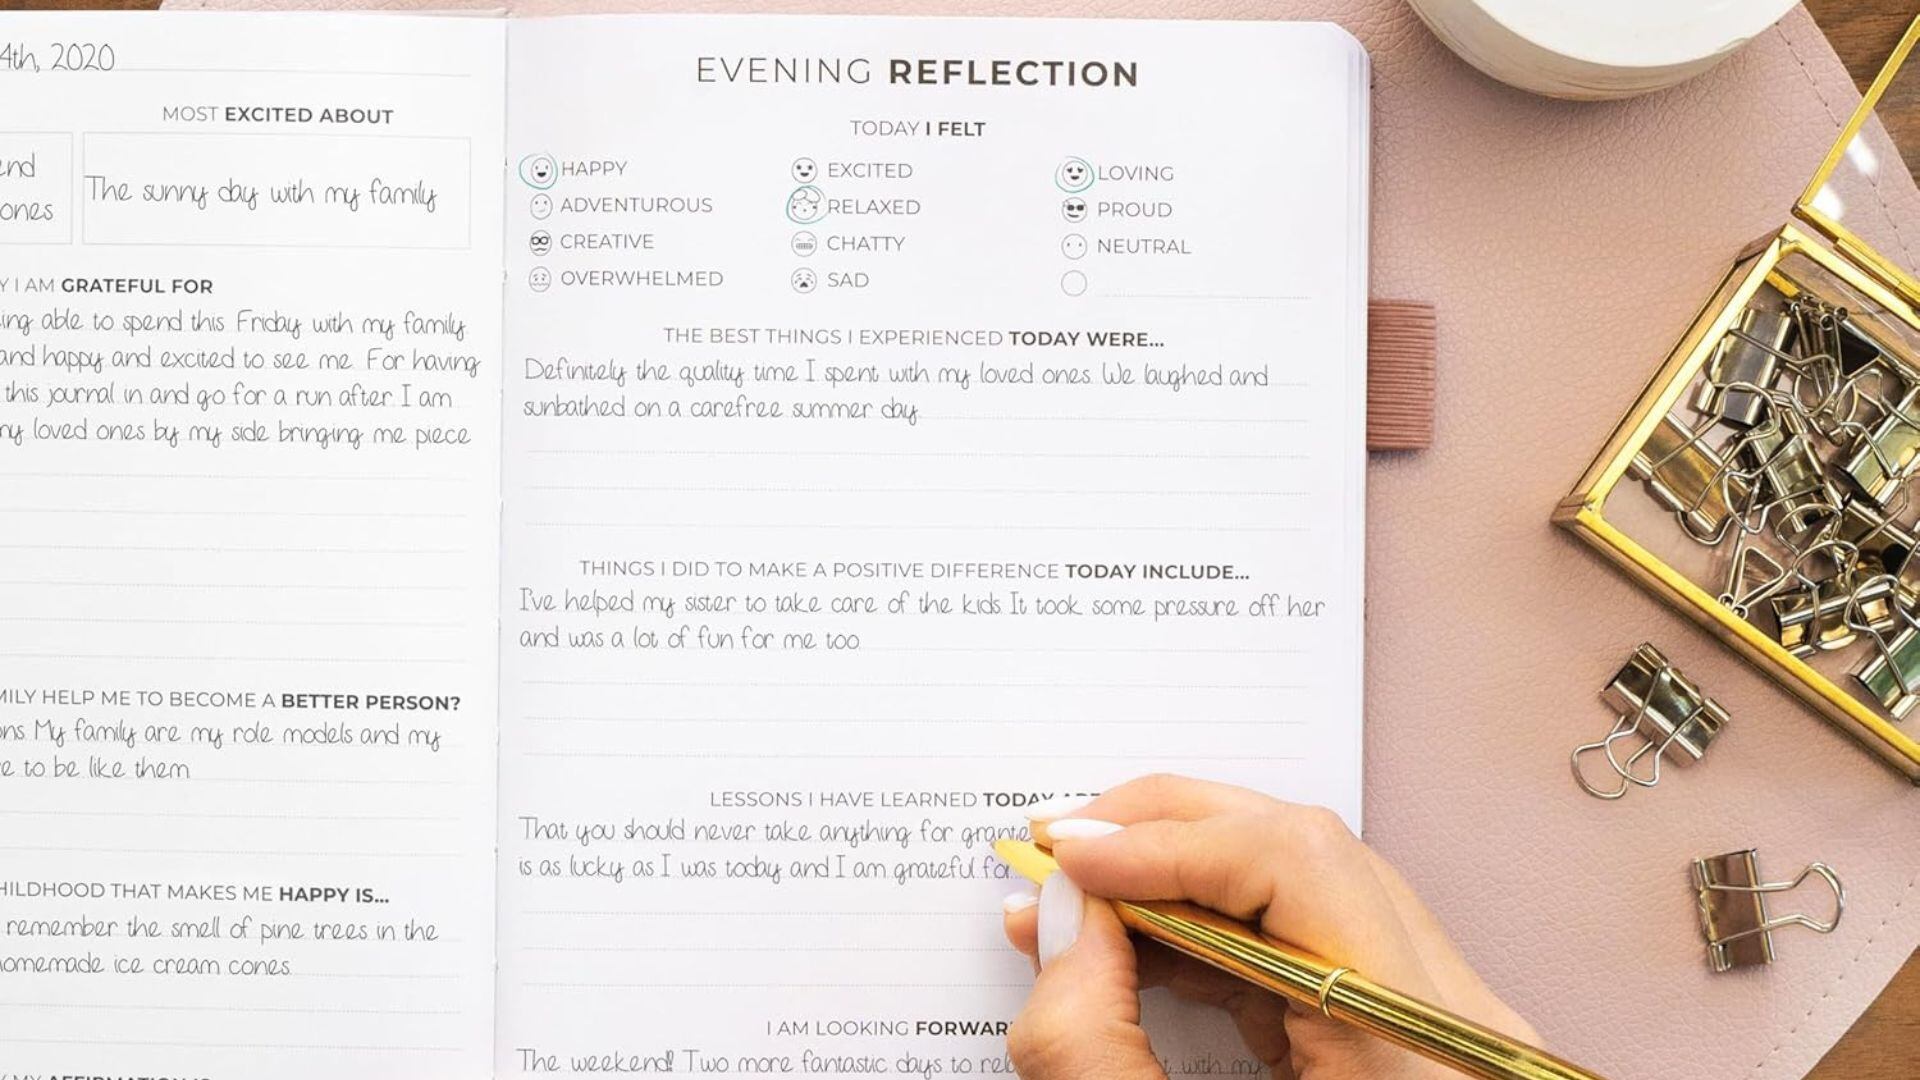 4th, 2020
MOST EXCITED ABOUT
end
ones
The sunny day with my family
Y I AM GRATEFUL FOR
ing able to spend this Friday with my family
and happy and excited to see me. For having
this journal in and go for a run after. I am
my loved ones by my side bringing me piece
MILY HELP ME TO BECOME A BETTER PERSON?
ons. My family are my role models and my
e to be like them.
HILDHOOD THAT MAKES ME HAPPY IS...
remember the smell of pine trees in the
omemade ice cream cones.
MY AFFIRMATION IS
EVENING REFLECTION
TODAY I FELT
HAPPY EXCITED LOVING
ADVENTUROUS RELAXED PROUD
CREATIVE CHATTY NEUTRAL
OVERWHELMED SAD
THE BEST THINGS I EXPERIENCED TODAY WERE...
Definitely the quality time I spent with my loved ones. We laughed and
sunbathed on a carefree summer day.
THINGS I DID TO MAKE A POSITIVE DIFFERENCE TODAY INCLUDE...
I've helped my sister to take care of the kids. It took some pressure off her
and was a lot of fun for me too.
LESSONS I HAVE LEARNED TODAY ARE
That you should never take anything for grante
is as lucky as I was today and I am grateful for
I AM LOOKING FORWAR
The weekend! Two more fantastic days to rel t with my